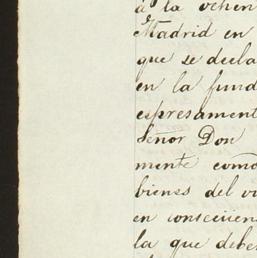 á la ochen
Madrid en
que se decla
en la fund
espresament
Señor Don
mente como
bienes del vi
en consecuen
la que debe